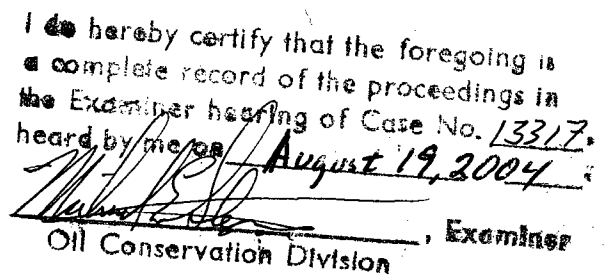 I do hereby certify that the foregoing is
a complete record of the proceedings in
the Examiner hearing of Case No. 13317,
heard by me on August 19, 2004.
, Examiner
Oil Conservation Division